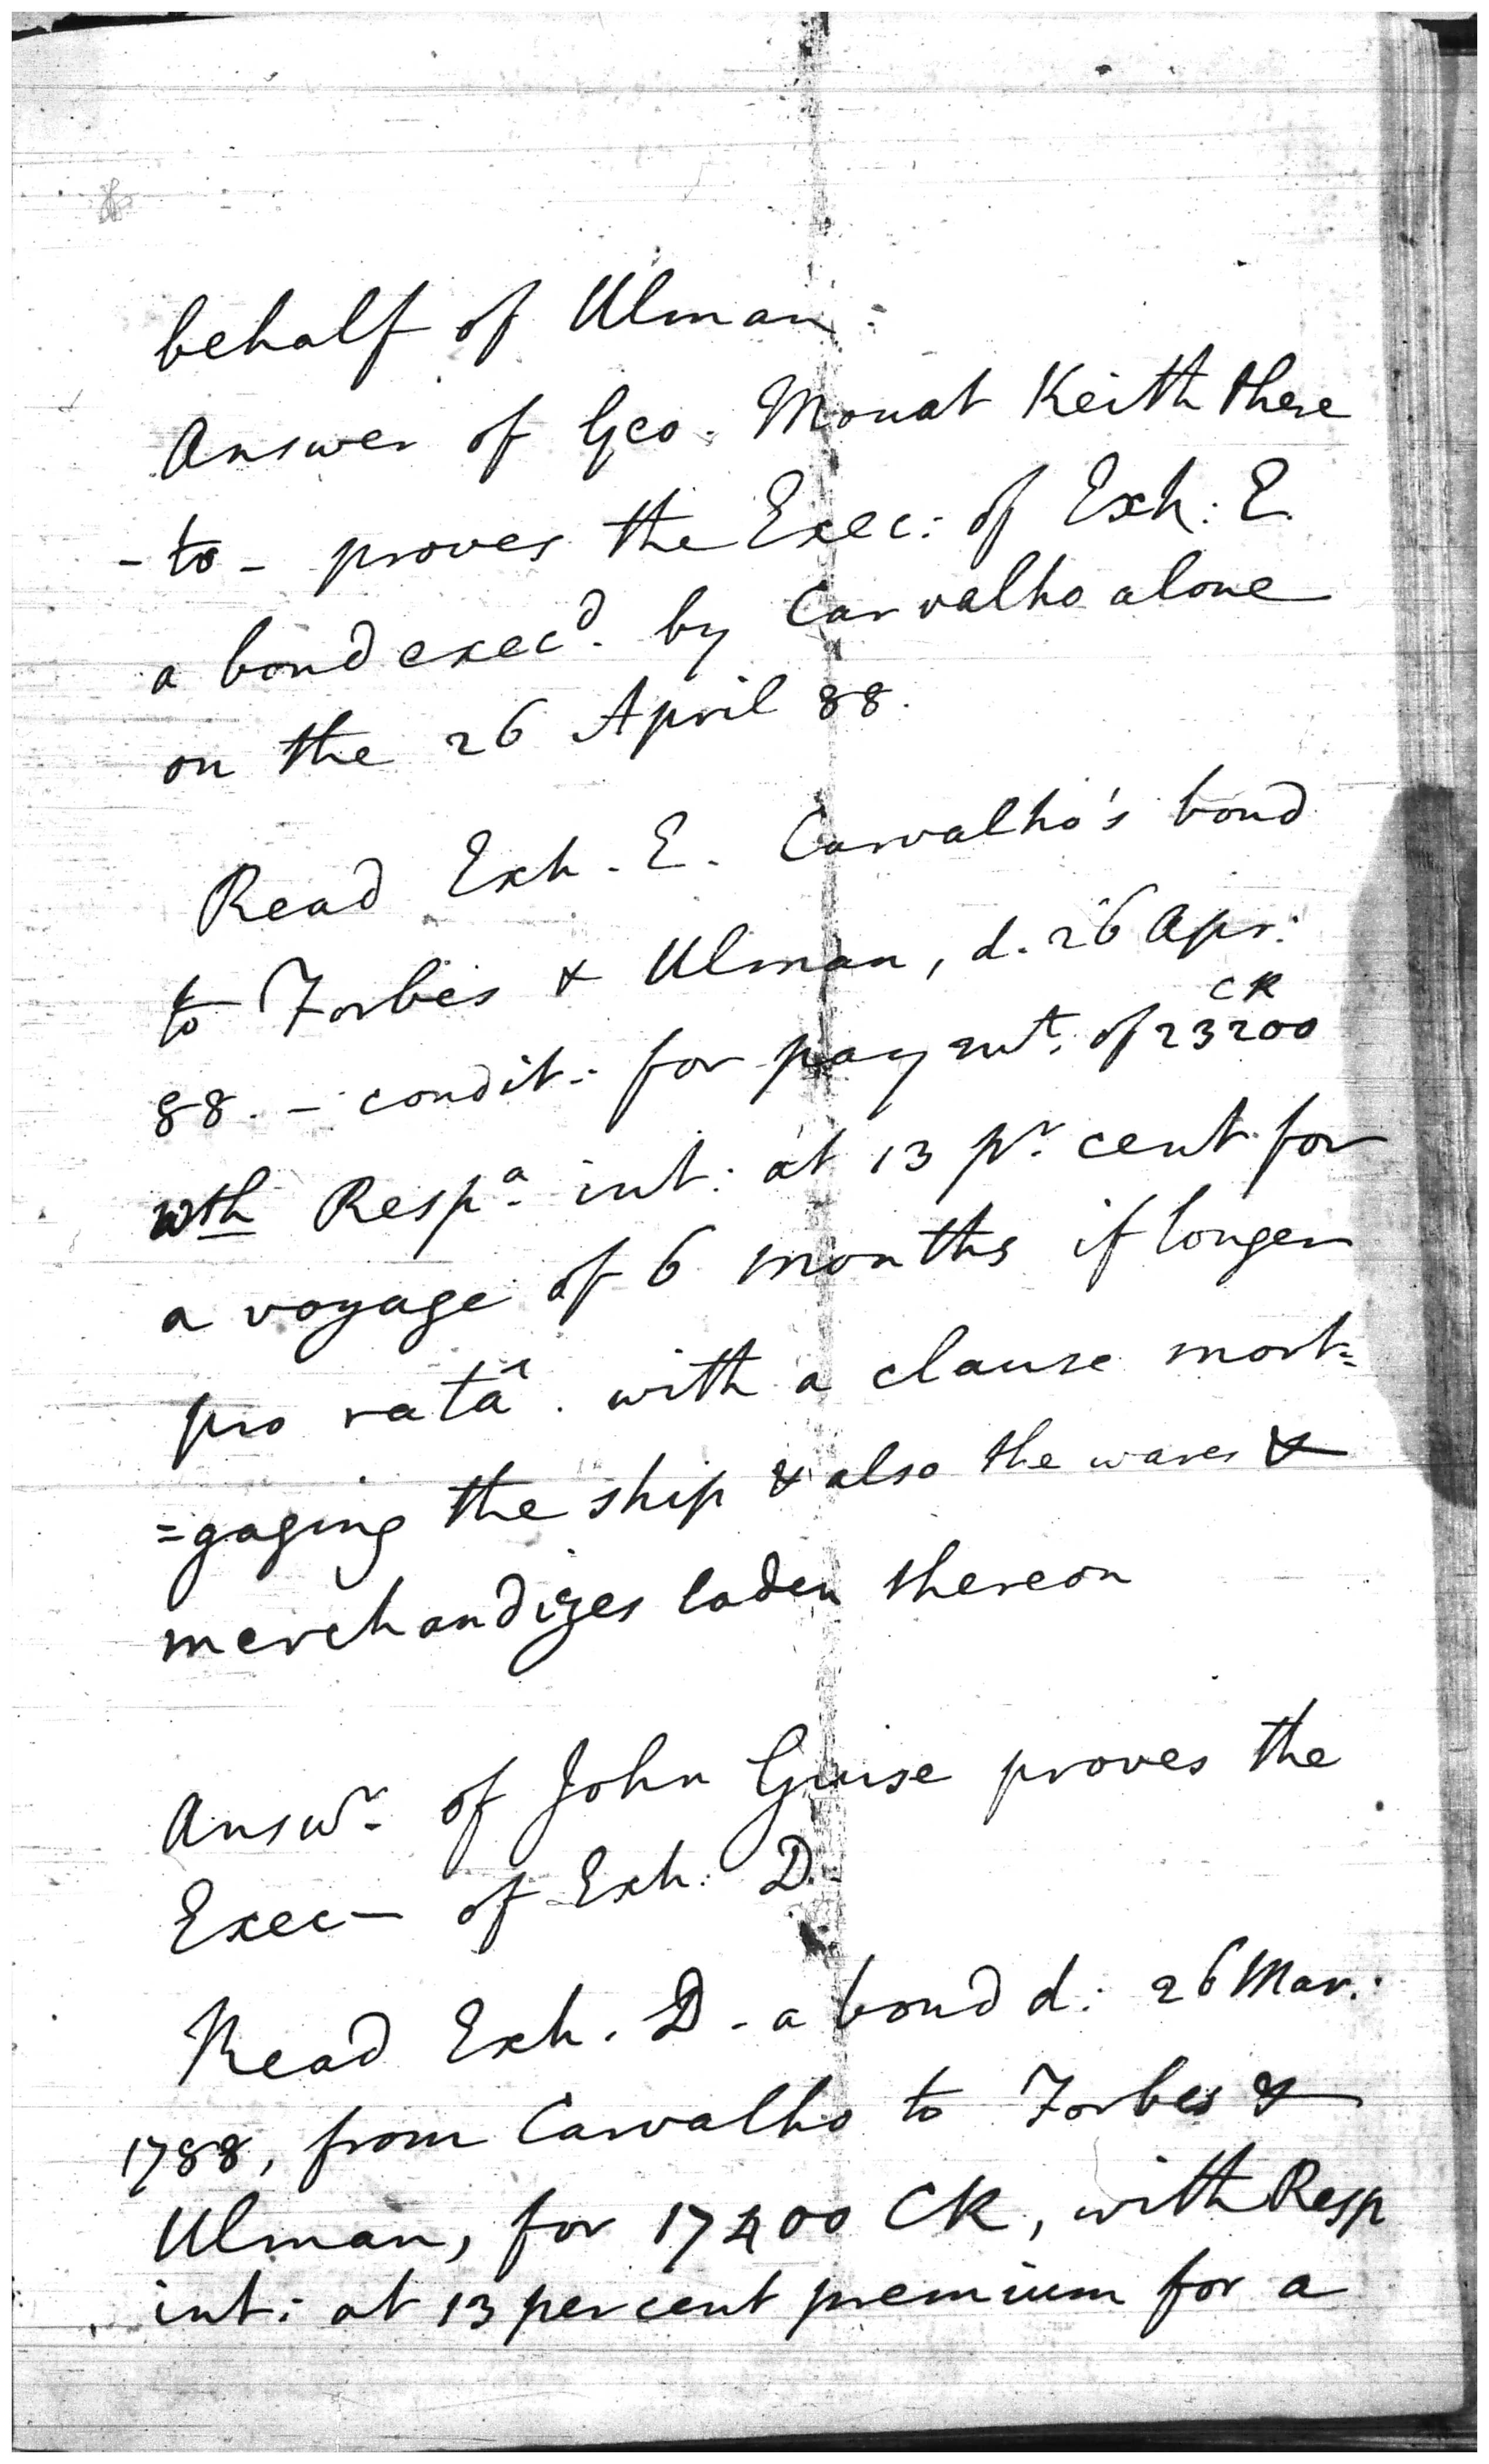 behalf of Ulman.
Answer of Geo. Mouat Keith there
-to- proves the Exec: of Exh: E.
a bond execd. by Carvalho alone
on the 26 April 88.
Read Exh. E. Carvalho's bond
to Forbes & Ulman, d. 26 Apr:
88. - condit: for paymt. of 23200 CR
wth Respa int: at 13 pr. cent for
a voyage of 6 months if longer
pro ratâ. with a clause mort=
=gaging the ship & also the wares &
merchandizes laden thereon
Answr. of John Guise proves the
Exec- of Exh: D.
Read Exh. D. a bond d: 26 Mar:
1788, from Carvalho to Forbes &
Ulman, for 17400 CR, with Resp
int: at 13 per cent premium for a